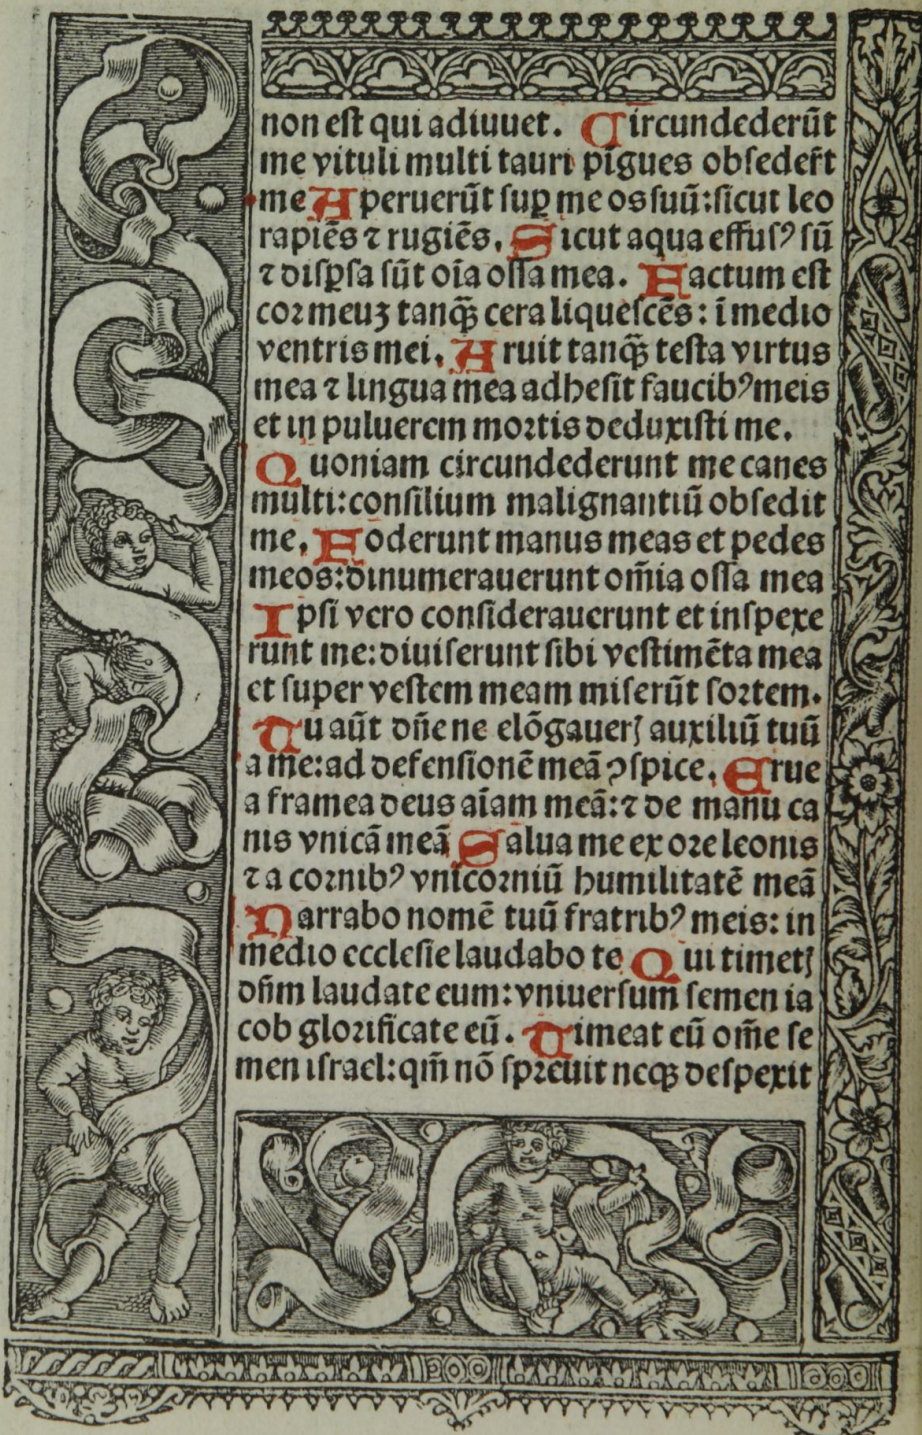 non est qui adiuuet. Circundederūt
me vituli multi tauri pigues obsederūt
me Aperuerūt sup̱ me os suū: sicut leo
rapiēs ⁊ rugiēs. Sicut aqua effusꝰ sū
⁊ disp̱sa sūt oīa ossa mea. Factum est
cor meuꝫ tanqꝫ̄ cera liquescēs: ī medio
ventris mei. Aruit tanqꝫ̄ testa virtus
mea ⁊ lingua mea adhesit faucibꝰ meis
et in puluerem mortis deduxisti me.
Quoniam circundederunt me canes
multi: consilium malignantiū obsedit
me. Foderunt manus meas et pedes
meos: dinumerauerunt om̄ia ossa mea
Ipsi vero considerauerunt et inspexe
runt me: diuiserunt sibi vestimēta mea
et super vestem meam miserūt sortem.
Tu aūt dn̄e ne elōgauerꝭ auxiliū tuū
a me: ad defensionē meā ꝯspice. Erue
a framea deus aīam meā: ⁊ de manu ca
nis vnicā meā Salua me ex ore leonis
⁊ a cornibꝰ vnicorniū humilitatē meā
Narrabo nomē tuū fratribꝰ meis: in
medio ecclesie laudabo te Qui timetꝭ
dn̄m laudate eum: vniuersum semen ia
cob glorificate eū. Timeat eū om̄e se
men israel: qm̄ nō spreuit neqꝫ despexit